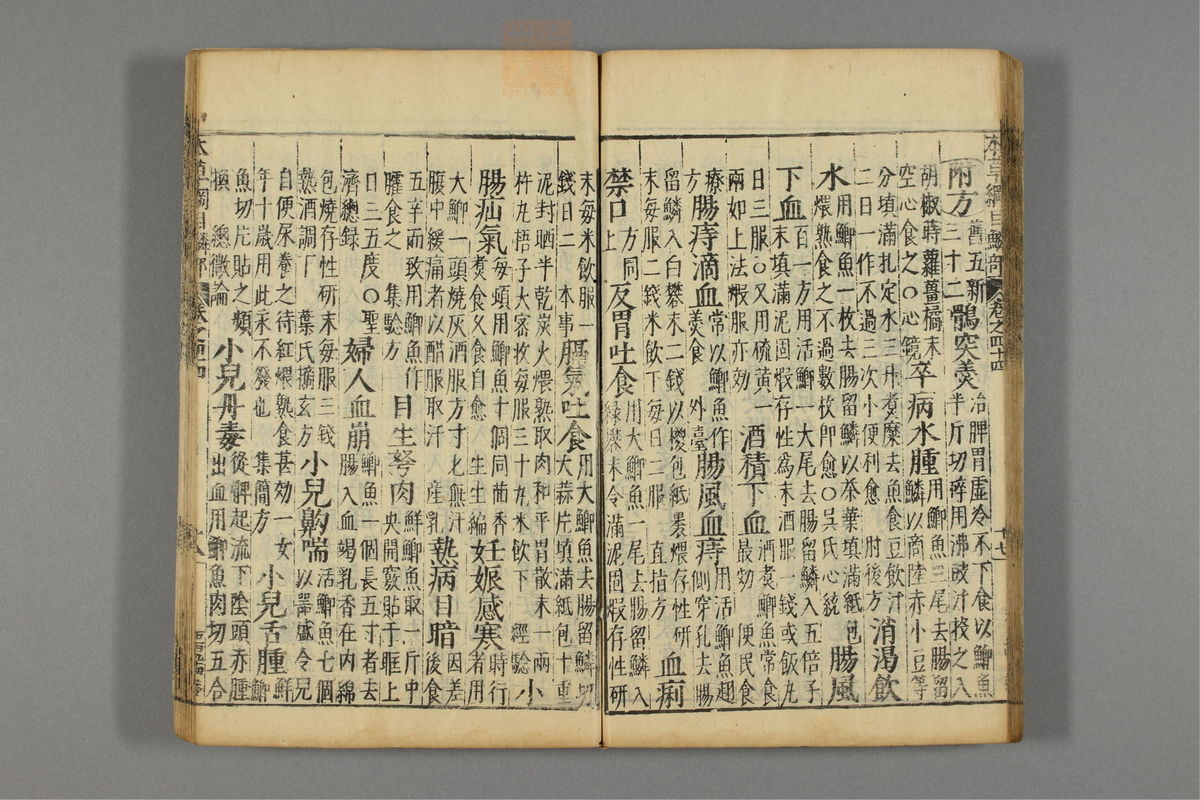 本草綱目鱗部 卷之四十四 十七
附方舊五新三十二鶻突羹治脾胃虛冷不下食以鯽魚半斤切碎用沸豉汁投之入
胡椒蒔蘿薑橘末空心食之○心鏡卒病水腫用鯽魚三尾去腸留鱗以商陸赤小豆等
分填滿扎定水三升煮糜去魚食豆飲汁二日一作不過三次小便利愈 肘後方消渴飲
水用鯽魚一枚去腸留鱗以茶葉填滿紙包煨熟食之不過數枚即愈○吳氏心統腸風
下血百一方用活鯽一大尾去腸留鱗入五倍子末填滿泥固煅存性爲末酒服一錢或飯丸
日三服○又用硫黃一兩如上法煅服亦効酒積下血酒煮鯽魚常食最効 便民食
療方腸痔滴血常以鯽魚作羹食 外臺腸風血痔用活鯽魚翅側穿孔去腸
留鱗入白礬末二錢以椶包紙裹煨存性研末每服二錢米飲下每日二服 直指方血痢
禁口方同上反胃吐食用大鯽魚一尾去腸留鱗入綠礬末令滿泥固煅存性研
末每米飲服一錢日二 本事膈氣吐食用大鯽魚去腸留鱗切大蒜片填滿紙包十重
泥封晒半乾炭火煨熟取肉和平胃散末一兩杵丸梧子大密收每服三十丸米飲下 經驗小
腸疝氣每頓用鯽魚十個同茴香煮食久食自愈 生生編妊娠感寒時行者用
大鯽一頭燒灰酒服方寸匕無汁腹中緩痛者以醋服取汗 產乳熱病目暗因差後食
五辛而致用鯽魚作臛食之 集驗方目生弩肉鮮鯽魚取一斤中央開竅貼于眶上
日三五度○聖濟總錄婦人血崩鯽魚一個長五寸者去腸入血竭乳香在內綿
包燒存性研末每服三錢熱酒調下 葉氏摘玄方小兒齁喘活鯽魚七個以器盛令兒
自便尿養之待紅煨熟食甚効一女年十歲用此永不發也 集簡方小兒舌腫鮮鯽
魚切片貼之頻換 總微論小兒丹毒從髀起流下陰頭赤腫出血用鯽魚肉切五合
本草綱目鱗部 卷之四十四 十八